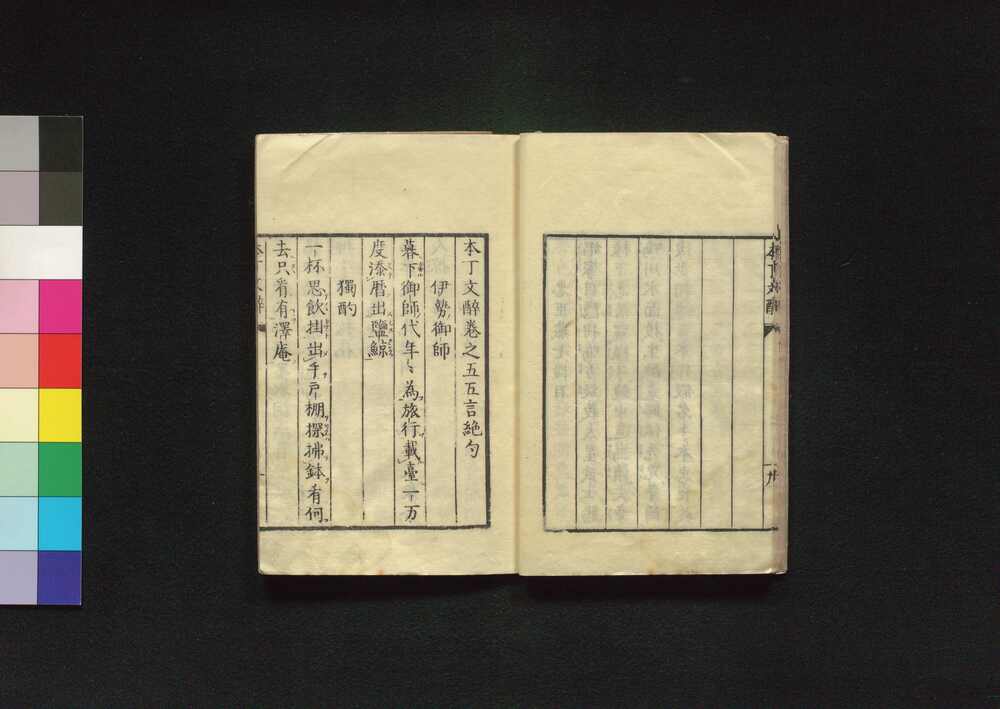 本丁文醉
十九
本丁文醉卷之五五言絶句
伊勢御師
暮下御師代年〻為旅行載臺一万
度添暦出鹽鯨
獨酌
一杯思飲掛出手戸棚探拂鉢肴何
去只肴有澤庵
本丁文醉